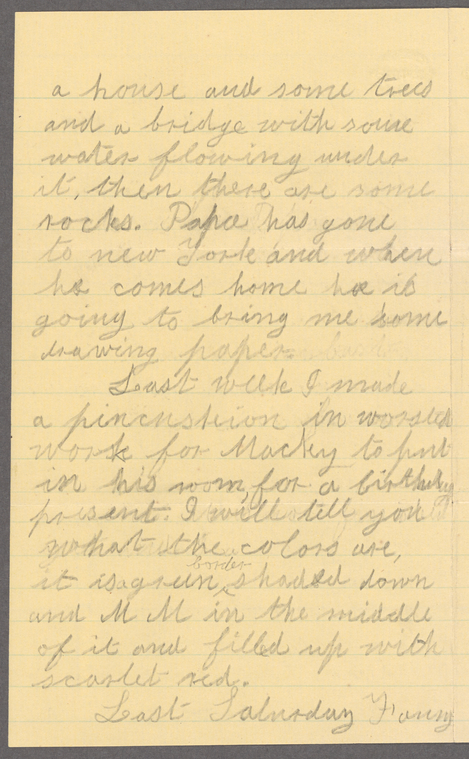 a house and some trees
and a bridge with some
water flowing under
it, then there are some
rocks. Papa has gone
to new York and when
he comes home he is
going to bring me some
drawing paper.
Last week I made
a pincushion in worsted
work for Macky to put
in his room, for a birthday
present. I will tell you
what the colors are,
it is a green border, shaded down
and M M in the middle
of it and filled up with
scarlet red.
Last Saturday Fanny